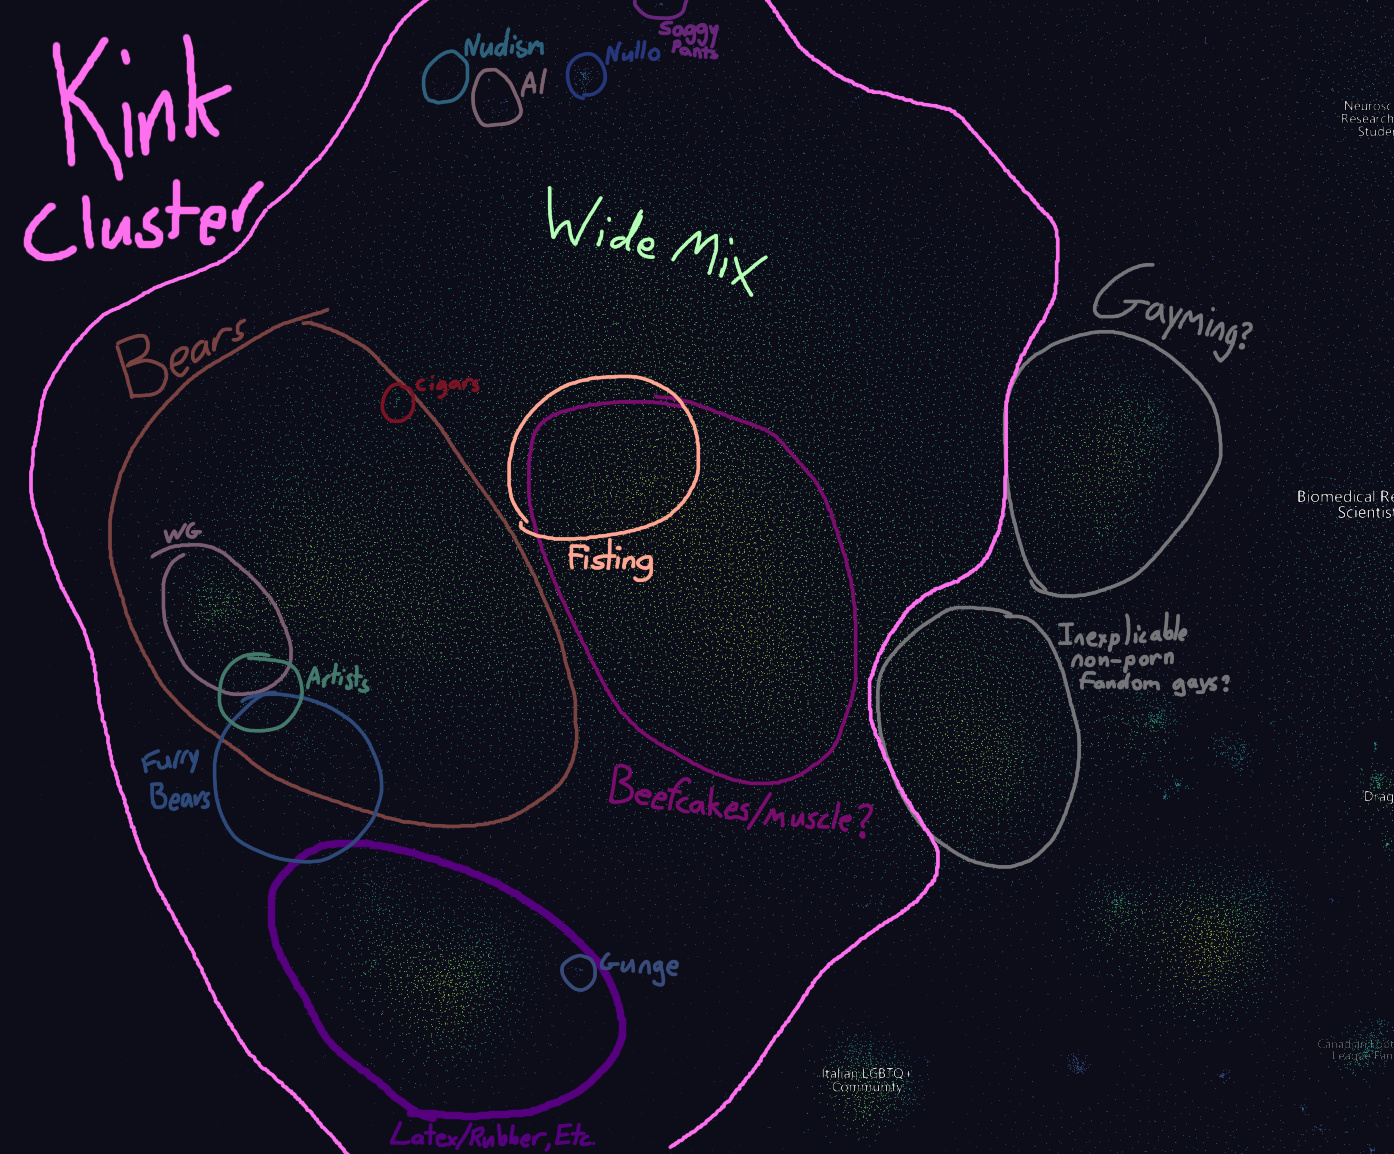 Kink
Cluster
Saggy
Pants
Nudism
AI
Nullo
Neurosc
Research
Studen
Wide Mix
Gayming?
Bears
Cigars
Biomedical Re
Scientist
WG
Fisting
Artists
Inexplicable
non-porn
Fandom gays?
Furry
Bears
Beefcakes/muscle?
Drag
Gunge
Italian LGBTQ+
Community
League Fan
Latex/Rubber, Etc.